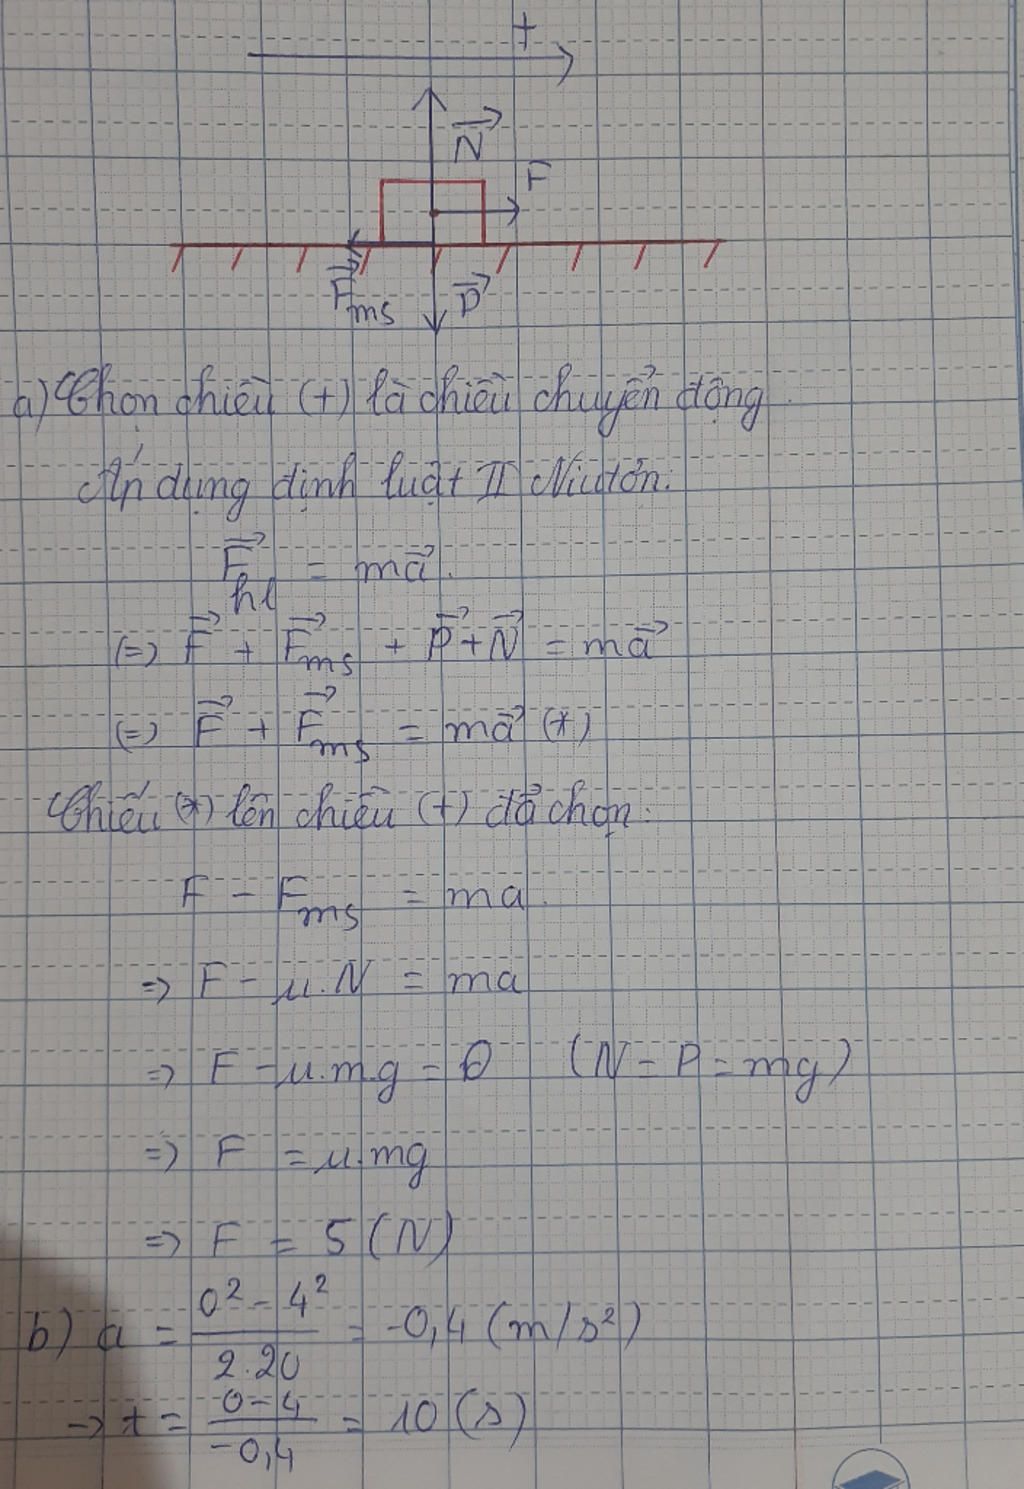 +
N⃗
F
F⃗ms
P⃗
a) Chọn chiều (+) là chiều chuyển động.
Áp dụng định luật II Niutơn:
F⃗hl = ma⃗.
(=) F⃗ + F⃗ms + P⃗ + N⃗ = ma⃗
(=) F⃗ + F⃗ms = ma⃗ (*)
Chiếu (*) lên chiều (+) đã chọn:
F - Fms = ma.
=> F - μ.N = ma
=> F - μ.m.g = 0 (N = P = mg)
=> F = μ.mg
=> F = 5 (N)
b) a = (0² - 4²)/(2.20) = -0,4 (m/s²)
→ t = (0 - 4)/(-0,4) = 10 (s)